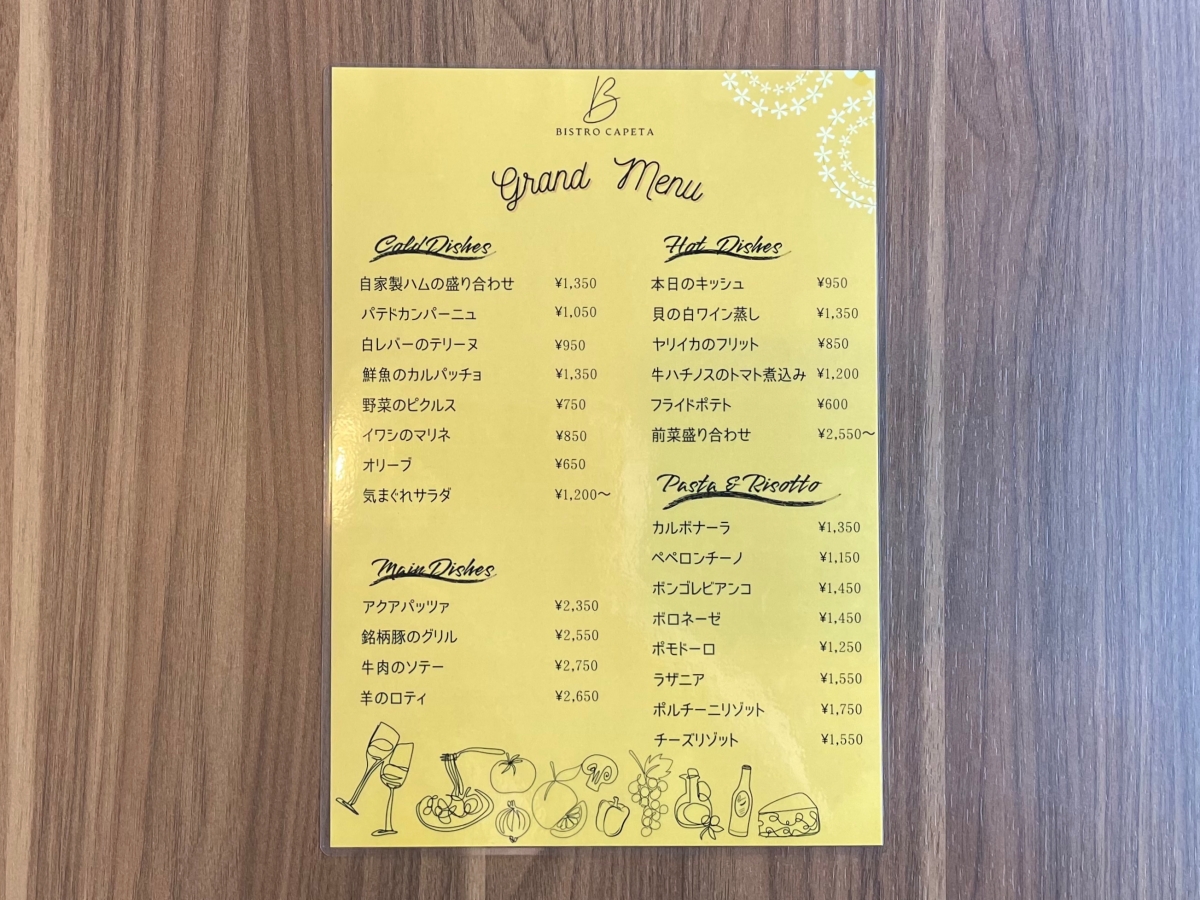 B
BISTRO CAPETA
Grand Menu
Cold Dishes
自家製ハムの盛り合わせ ¥1,350
パテドカンパーニュ ¥1,050
白レバーのテリーヌ ¥950
鮮魚のカルパッチョ ¥1,350
野菜のピクルス ¥750
イワシのマリネ ¥850
オリーブ ¥650
気まぐれサラダ ¥1,200〜
Main Dishes
アクアパッツァ ¥2,350
銘柄豚のグリル ¥2,550
牛肉のソテー ¥2,750
羊のロティ ¥2,650
Hot Dishes
本日のキッシュ ¥950
貝の白ワイン蒸し ¥1,350
ヤリイカのフリット ¥850
牛ハチノスのトマト煮込み ¥1,200
フライドポテト ¥600
前菜盛り合わせ ¥2,550〜
Pasta & Risotto
カルボナーラ ¥1,350
ペペロンチーノ ¥1,150
ボンゴレビアンコ ¥1,450
ボロネーゼ ¥1,450
ポモドーロ ¥1,250
ラザニア ¥1,550
ポルチーニリゾット ¥1,750
チーズリゾット ¥1,550